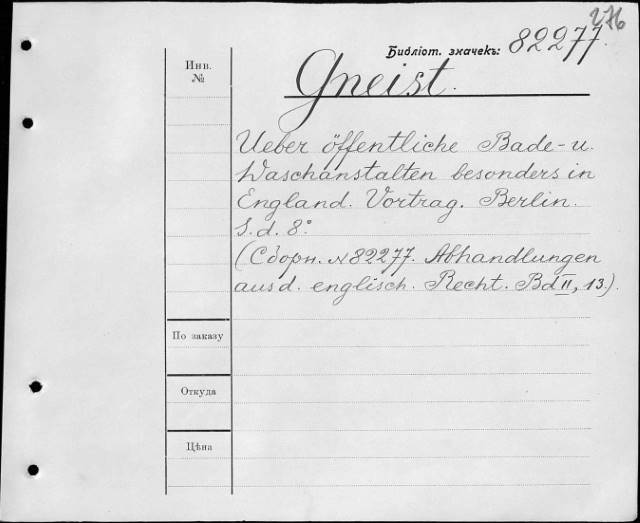 276
Библіот. значекъ: 82277.
Инв.
№
Gneist.
Ueber öffentliche Bade- u.
Waschanstalten besonders in
England. Vortrag. Berlin.
S. d. 8°.
(Сборн. № 82277. Abhandlungen
aus d. englisch. Recht. Bd II, 13.).
По заказу
Откуда
Цѣна